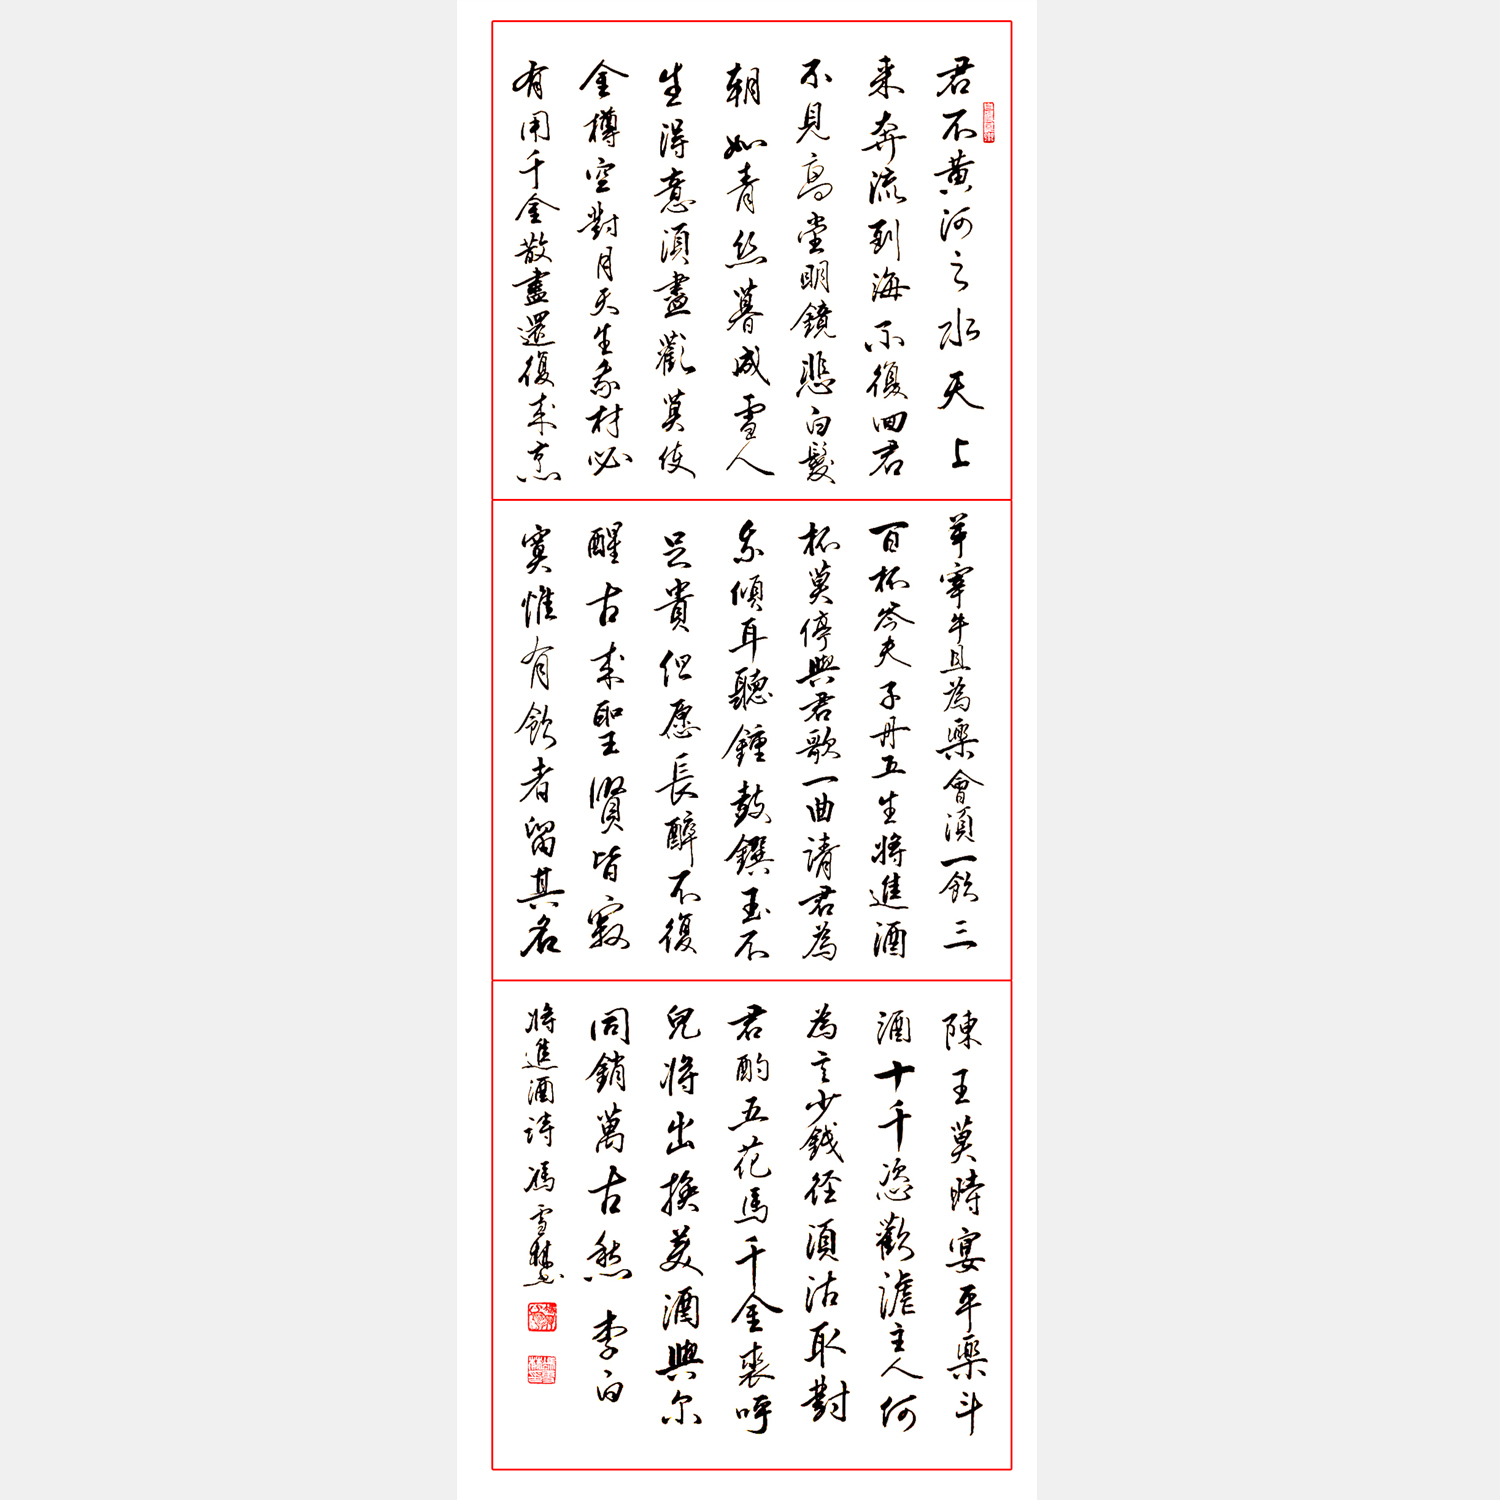 君不黄河之水天上
来奔流到海不復回君
不見高堂明鏡悲白髮
朝如青丝暮成雪人
生得意須盡歡莫使
金樽空對月天生我材必
有用千金散盡還復来烹
羊宰牛且為樂會須一飲三
百杯岑夫子丹丘生將進酒
杯莫停與君歌一曲请君為
我傾耳聽鍾鼓饌玉不
足貴但愿長醉不復
醒古来聖賢皆寂
寞惟有飲者留其名
陳王莫時宴平樂斗
酒十千恣歡謔主人何
為言少錢径須沽取對
君酌五花馬千金裘呼
兒將出換美酒與尔
同銷萬古愁 李白
將進酒詩 馮雪林